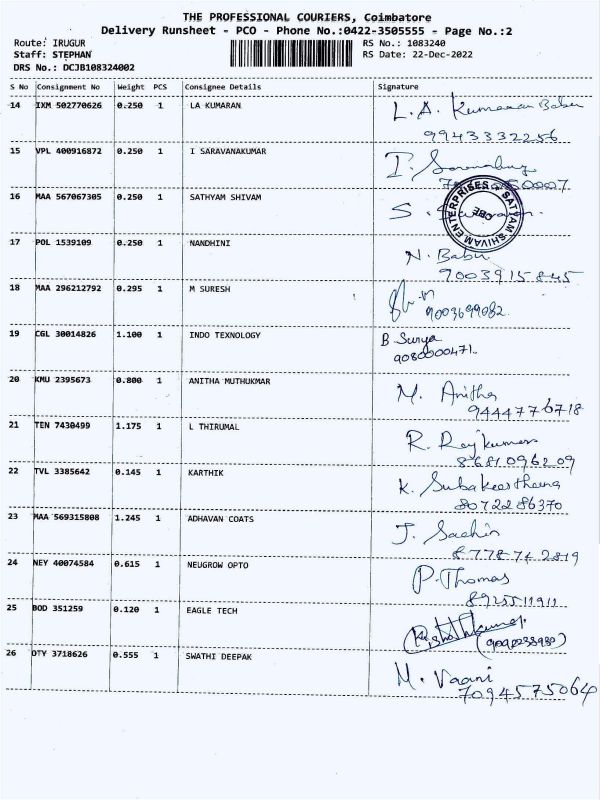 THE PROFESSIONAL COURIERS, Coimbatore
Delivery Runsheet - PCO - Phone No.:0422-3505555 - Page No.:2
Route: IRUGUR
RS No.: 1083240
Staff: STEPHAN
RS Date: 22-Dec-2022
DRS No.: DCJB108324002
S No Consignment No Weight PCS Consignee Details Signature
14 IXM 502770626 0.250 1 LA KUMARAN L.A. Kumaran Babu
9943332256
15 VPL 400916872 0.250 1 I SARAVANAKUMAR I.
16 MAA 567067305 0.250 1 SATHYAM SHIVAM S.
SATYAM SHIVAM ENTERPRISES
CBE
17 POL 1539109 0.250 1 NANDHINI N. Babu
9003915845
18 MAA 296212792 0.295 1 M SURESH
9003699082
19 CGL 30014826 1.100 1 INDO TEXNOLOGY B Surya
9080000471
20 KMU 2395673 0.800 1 ANITHA MUTHUKMAR M. Anitha
9444776718
21 TEN 7430499 1.175 1 L THIRUMAL R. Rajkumar
8681096209
22 TVL 3385642 0.145 1 KARTHIK K. Subakeerthana
8072286370
23 MAA 569315808 1.245 1 ADHAVAN COATS J. Sachin
8778742819
24 NEY 40074584 0.615 1 NEUGROW OPTO P. Thomas
8925511911
25 BOD 351259 0.120 1 EAGLE TECH
26 OTY 3718626 0.555 1 SWATHI DEEPAK M. Vaani
7094575064